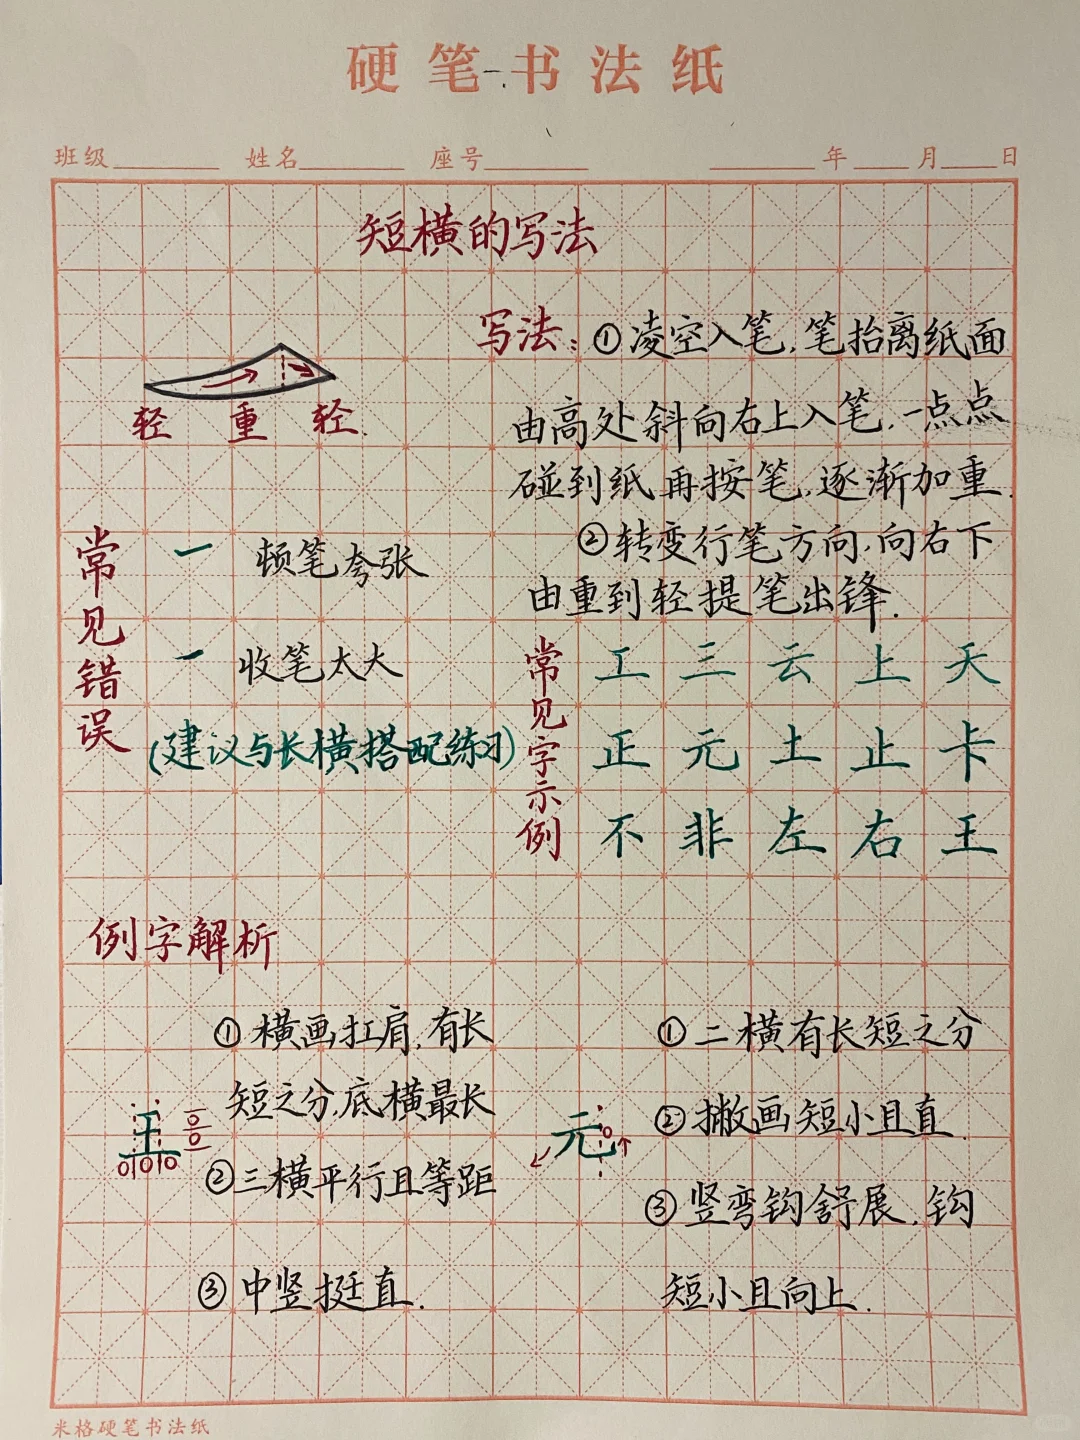 硬笔书法纸
班级 姓名 座号 年 月 日
短横的写法
写法：①凌空入笔，笔抬离纸面
由高处斜向右上入笔，一点点
碰到纸再按笔，逐渐加重．
②转变行笔方向，向右下
由重到轻提笔出锋．
轻 重 轻
常见错误
一 顿笔夸张
一 收笔太大
(建议与长横搭配练习)
常见字示例
工 三 云 上 天
正 元 土 止 卡
不 非 左 右 王
例字解析
王
①横画扛肩，有长
短之分，底横最长
②三横平行且等距
③中竖挺直．
元
①二横有长短之分
②撇画短小且直
③竖弯钩舒展，钩
短小且向上．
米格硬笔书法纸